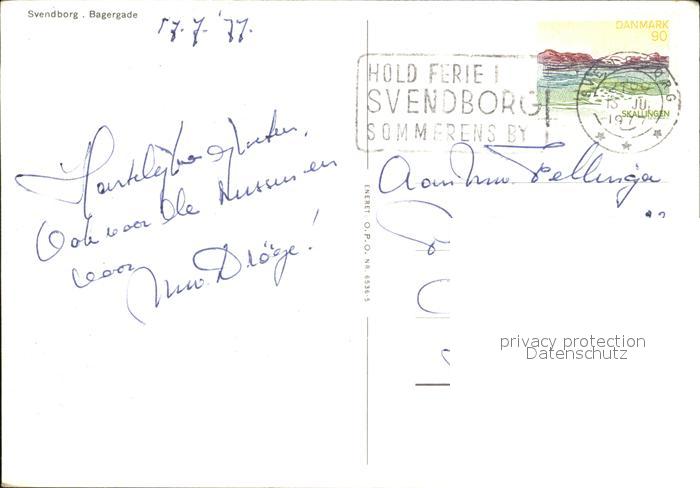 Svendborg . Bagergade
17.7.'77.
DANMARK
90
SKALLINGEN
HOLD FERIE I
SVENDBORG
SOMMERENS BY
SVENDBORG
15 JU.
1977
Hartelijke groeten,
Ook voor de Nussen en
voor
Mw. Dröge!
Aan Mw. Fellinga
ENERET: O.P.O. NR. 6536-5
privacy protection
Datenschutz